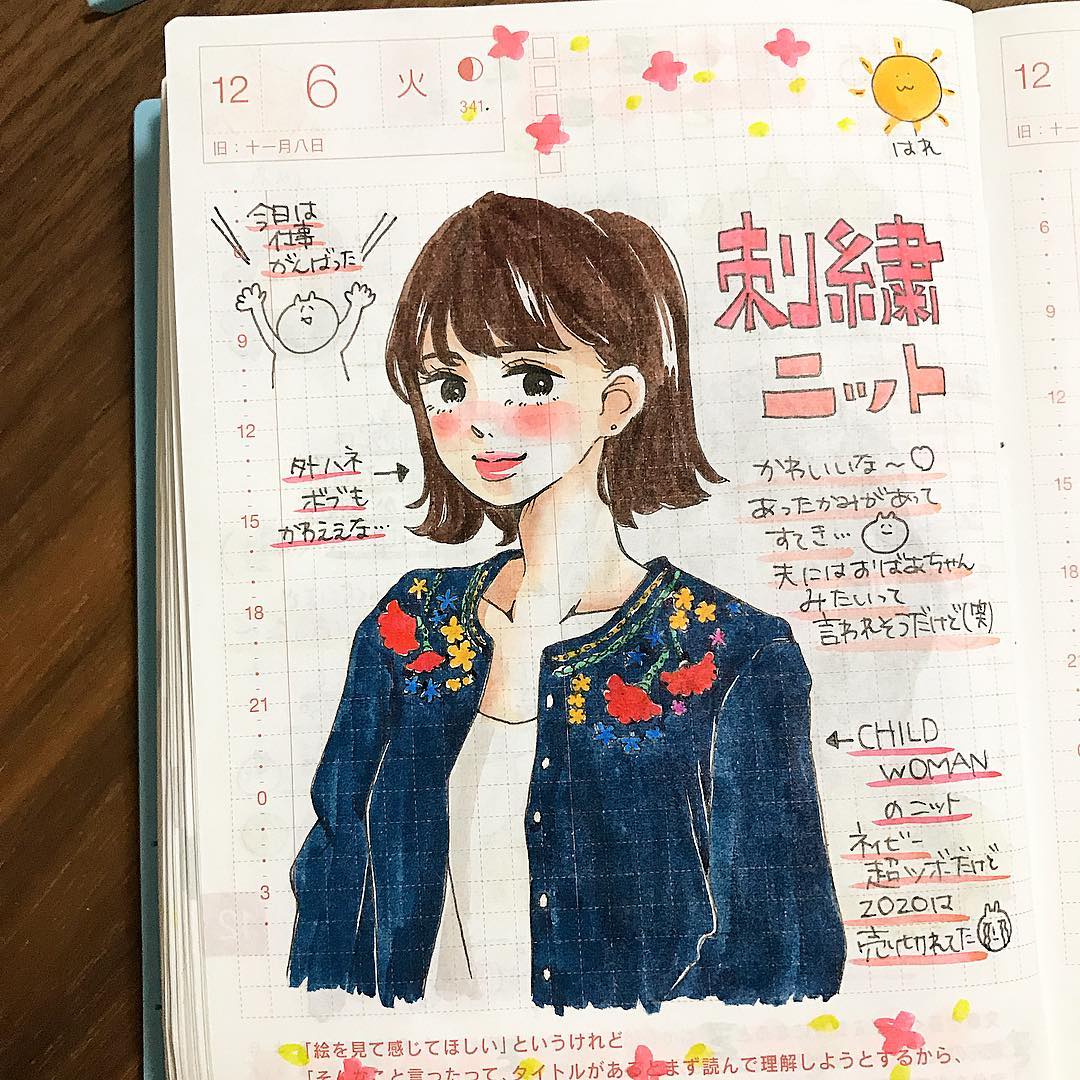 12 6 火
341.
旧：十一月八日
はれ
12
旧：十一
今日は
仕事
がんばった
刺繍
ニット
外ハネ
ボブも
かわええな…
かわいいな〜♡
あったかみがあって
すてき…
夫にはおばあちゃん
みたいって
言われそうだけど(笑)
←CHILD
WOMAN
のニット
ネイビー
超ツボだけど
2020は
売り切れてた
9
12
15
18
21
0
3
6
9
12
15
18
「絵を見て感じてほしい」というけれど
「そんなこと言ったって、タイトルがあるとまず読んで理解しようとするから、